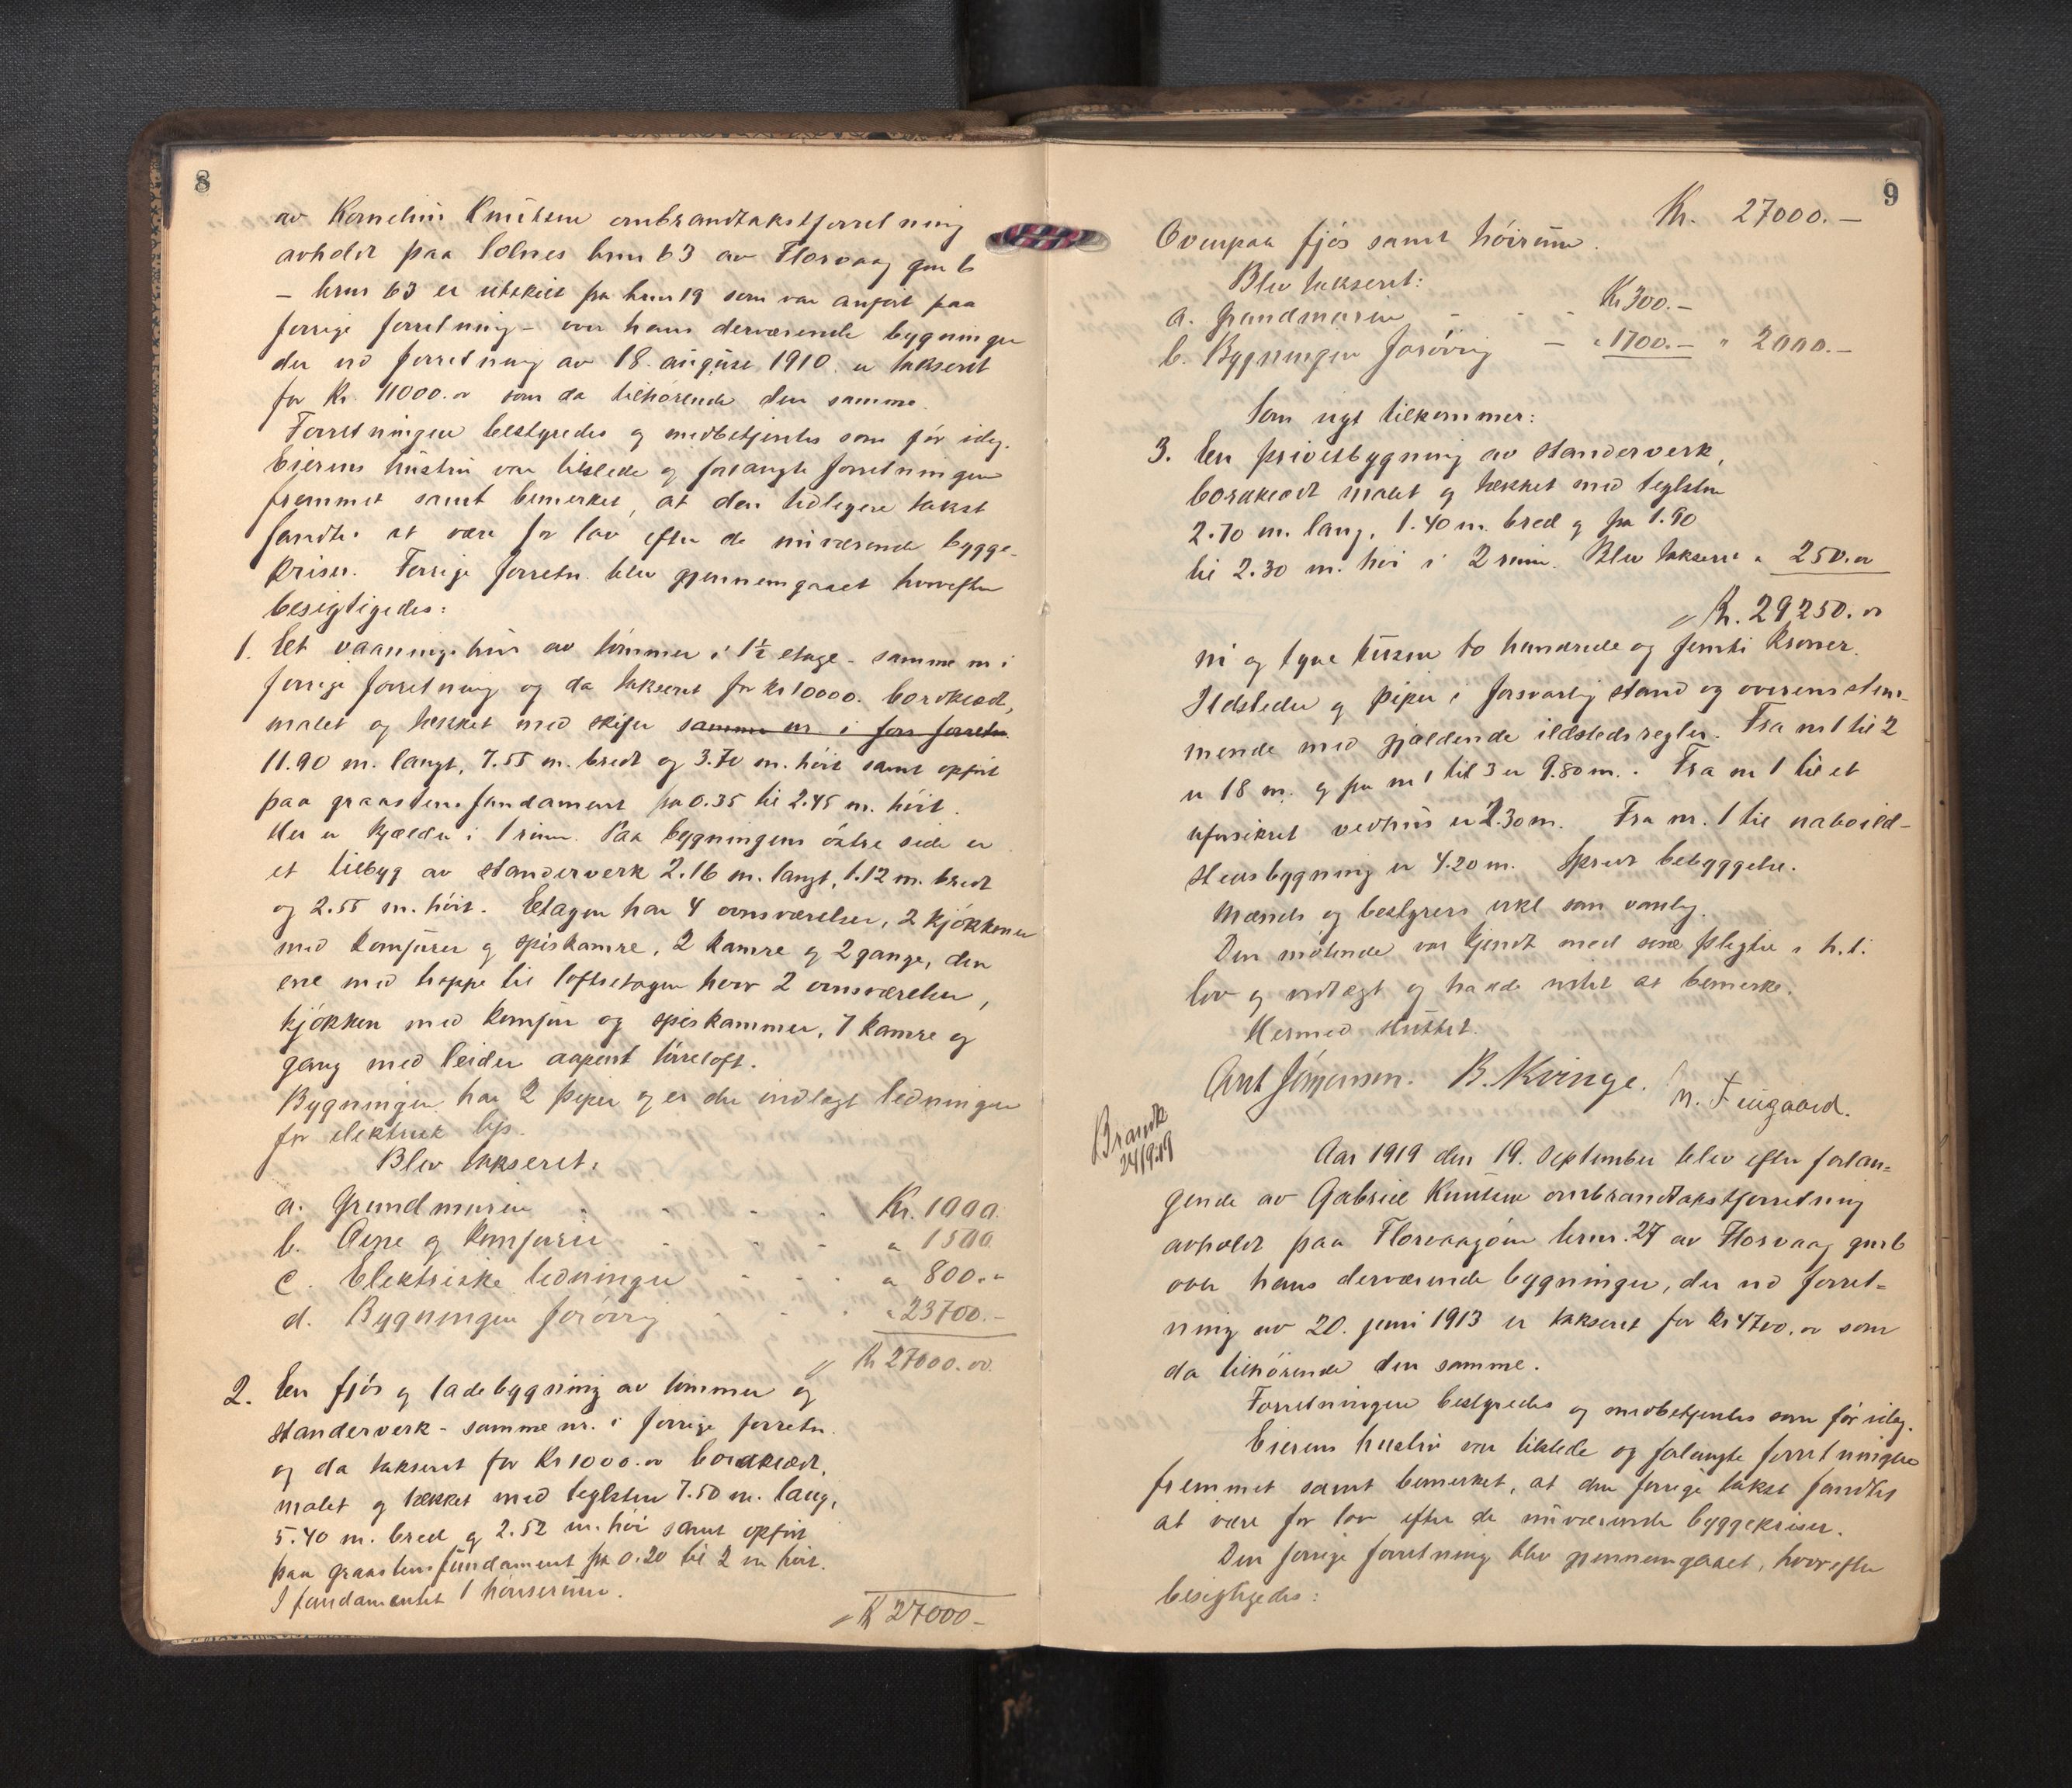 8
av Kornelius Knutsen ombrandtakstforretning
avholdt paa Solnes brnr 63 av Florvaag gnr 6
- brnr 63 er utskilt fra brnr 19 som var anført paa
forrige forretning - over hans derværende bygninger
der ved forretning av 18. august 1910 er takseret
for Kr. 11000.00 som da tilhørende den samme.
Forretningen bestyredes og medbetjentes som før idag.
Eierens hustru var tilstede og forlangte forretningen
fremmet samt bemerket, at den tidligere takst
fandtes at være for lav efter de nuværende bygge-
priser. Forrige forretn. blev gjennemgaaet hvorefter
besigtigedes:
1. Et vaaningshus av tømmer i 1½ etage - samme nr i
forrige forretning og da takseret for kr 10000. bordklædt,
malet og tækket med skifer samme nr i forr forretn.
11.90 m. langt, 7.55 m. bredt og 3.70 m. høit samt opført
paa graastens fundament fra 0.35 til 2.45 m. høit.
Her er kjælder i 1 rum. Paa bygningens østre side er
et tilbyg av standerverk 2.16 m. langt, 1.12 m. bredt
og 2.55 m. høit. Etagen har 4 ovnsværelser, 2 kjøkkener
med komfurer og spiskamre, 2 kamre og 2 gange, den
ene med trappe til loftsetagen hvor 2 ovnsværelser,
kjøkken med komfur og spiskammer, 7 kamre og
gang med leider aapent tørreloft.
Bygningen har 2 piper og er der indlagt ledninger
for elektrisk lys.
Blev takseret:
a. Grundmuren - - - - Kr. 1000.
b. Ovne og komfurer - - - " 1500.
c. Elektriske ledninger - - - " 800.-
d. Bygningen forøvrig - - - " 23700.-
" Kr 27000.00
2. En fjøs og ladebygning av tømmer og
standerverk - samme nr. i forrige forretn.
og da takseret for Kr 1000.00 bordklædt,
malet og tækket med teglsten 7.50 m. lang,
5.40 m. bred og 2.52 m. høi samt opført
paa graastensfundament fra 0.20 til 2 m høit.
I fundamentet 1 hønserum.
" Kr 27000-
9
Kr. 27000.-
Ovenpaa fjøs samt høirum.
Blev takseret:
a. Grundmuren - - - Kr 300.-
b. Bygningen forøvrig - " 1700.- " 2000.-
Som nyt tilkommer:
3. En privetbygning av standerverk,
bordklædt malet og tækket med teglsten
2.70 m. lang, 1.40 m. bred og fra 1.90
til 2.30 m. høi i 2 rum. Blev takseret " 250.00
" Kr. 29250.00
ni og tyve tusen to hundrede og femti kroner.
Ildsteder og piper i forsvarlig stand og overensstem-
mende med gjældende ildstedsregler. Fra nr 1 til 2
er 18 m. og fra nr 1 til 3 er 9.80 m. Fra nr 1 til et
uforsikret vedhus er 2.30 m. Fra nr. 1 til naboild-
stedsbygning er 4.20 m. Spredt bebyggelse.
Mænds og bestyrers erkl som vanlig.
Den møtende var kjendt med sine pligter i h.t.
lov og vedtægt og hadde intet at bemerke.
Hermed sluttet.
Ant Jørgensen. B. Kvinge.
Brandk
24/9.19
Aar 1919 den 19. September blev efter forlan-
gende av Gabriel Knutsen ombrandtakstforretning
avholdt paa Florvaagøen brnr. 27 av Florvaag gnr 6
over hans derværende bygninger, der ved forret-
ning av 20. juni 1913 er takseret for Kr 4700.00 som
da tilhørende den samme.
Forretningen bestyredes og medbetjentes som før idag.
Eierens hustru var tilstede og forlangte forretningen
fremmet samt bemerket, at den forrige takst fandtes
at være for lav efter de nuværende byggepriser.
Den forrige forretning blev gjennemgaaet, hvorefter
besigtigedes: